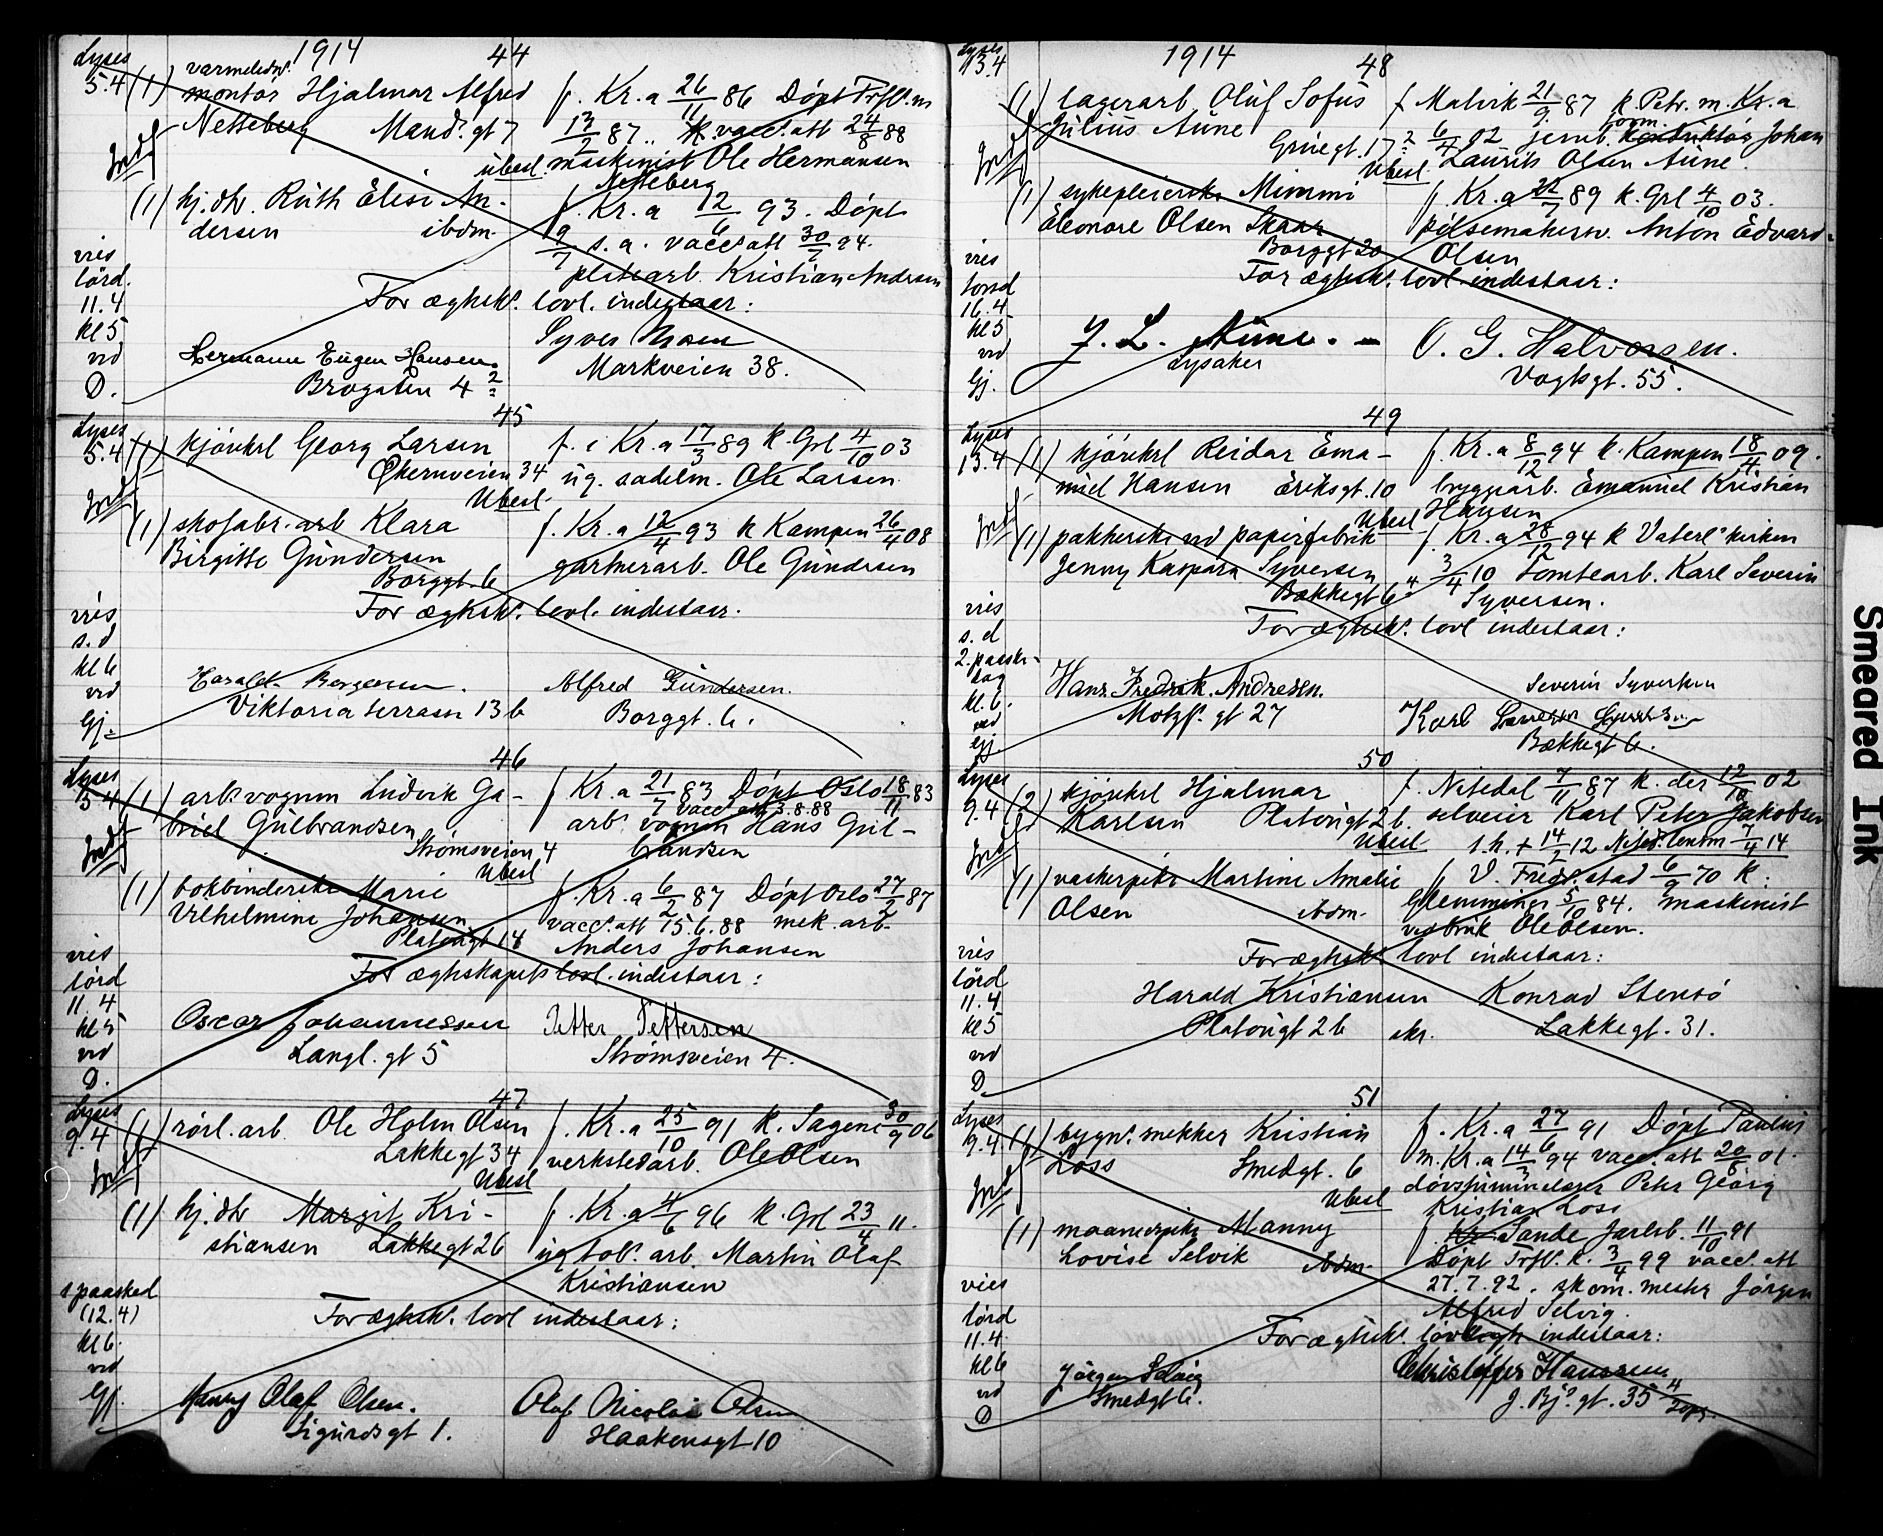 1914 44
Lyses 5.4
(1) varmeledn.
montør Hjalmar Alfred f. Kr.a 26/11 86 Døpt Trfl. m
Netteberg Mands. gt 7 13/2 87 .. vacc. att 24/8 88
Ubesl. maskinist Ole Hermansen
Netteberg
(1) hj.dtr. Ruth Elise An- f. Kr.a 12/6 93. Døpt
dersen ibdm. 9/7 s. a. vacc. att 30/7 94.
platearb. Kristian Andersen
vies
lørd.
11.4
kl 5
ved
D.
For ægtsk. lovl. indestaar:
Hermann Eugen Hansen. Syver Moen
Brogaten 4 2 Markveien 38.
45
Lyses 5.4
(1) kjørekrl Georg Larsen f. i Kr.a 17/3 89 k. Grl 4/10 03
Økernveien 34 ug. sadelm. Ole Larsen
Ubesl.
(1) skofabr. arb Klara f. Kr.a 12/4 93 k Kampen 26/4 08
Birgitte Gundersen gartnerarb. Ole Gundersen
Borggt. 6
vies
s. d
kl 6
ved
Gj.
For ægtsk. lovl. indestaar.
Harald Borgersen. Alfred Gundersen.
Viktoria terrasse 13 b Borggt. 6.
46
Lyses 5.4
(1) arb vognm Ludvik Ga- f Kr.a 21/7 83 Døpt Oslo 18/11 83
vacc. att 3.8.88
briel Gulbrandsen arb. vognm Hans Gul-
Strømsveien 4 brandsen
Ubesl
(1) bokbinderske Marie f. Kr.a 6/2 87 Døpt Oslo 27/2 87
Vilhelmine Johansen vacc. att 15.6.88 mek. arb.
Platougt 14 Anders Johansen
vies
lørd
11.4
kl 5
ved
D.
For ægtskapets lovl. indestaar:
Oscar Johannessen Petter Pettersen
Langl. gt 5 Strømsveien 4.
47
Lyses 9.4
(1) rørl. arb. Ole Holm Olsen f. Kr.a 25/10 91 k. Sagene 30/9 06
Lakkegt 34 verkstedarb. Ole Olsen
Ubesl
(1) hj. dtr Margit Kri- f. Kr.a 4/6 96 k. Grl 23/4 11.
stiansen Lakkegt 26 ug tob. arb. Martin Olaf
Kristiansen
1 paasked
(12.4)
kl 6.
ved
Gj.
For ægtsk. lovl indestaar:
Henry Olaf Olsen. Olaf Nicolai Olsen
Sigurdsgt 1. Haakonsgt 10
1914 48
Lyses 13.4
(1) lagerarb. Oluf Sofus f Malvik 21/9 87 k Petr. m. Kr.a
Julius Aune Grüegt. 17 2 6/4 02 jernb. form. Johan
Ubesl Laurits Olsen Aune.
(1) sykepleierske Mimmi f. Kr.a 22/7 89 k. Grl 4/10 03.
Eleonore Olsen Skaar pølsemakersv. Anton Edvard
Borggt 20 Olsen
vies
torsd
16.4
kl 5
ved
Gj.
For ægtsk. lovl. indestaar:
J. L. Aune. O. G. Halvorsen.
Lysaker Vogtsgt. 55.
49
Lyses 13.4
(1) kjørekrl Reidar Ema- f. Kr.a 8/12 94 k. Kampen 18/4 09.
nuel Hansen Eriksgt. 10 bryggearb. Emanuel Kristian
Ubesl Hansen
(1) pakkerske ved papirfabrik f. Kr.a 28/12 94 k Vaterl. kirken
Jenny Kaspara Syversen 3/4 10 Tomtearb. Karl Severin
Bækkegt 6 4 Syversen.
vies
s. d
2. paaske-
dag
kl. 6.
ved
Gj.
For ægtsk. lovl indestaar:
Hans Fredrik Andresen. Severin Syversen
Motzf. gt 27 Karl Severin Syversen
Bækkegt 6.
50
Lyses 9.4
(2) kjørekrl Hjalmar f. Nitedal 7/11 87 k. der 12/10 02
Karlsen Platougt 2 b. selveier Karl Peter Jakobsen
Ubesl 1. h. + 14/2 12 Nited. lensm 7/4 14
(1) vaskerpike Martine Amalie f V. Fredr.stad 6/9 70 k.
Olsen ibdm. Glemminge 5/10 84. maskinist
Ole Olsen.
vies
lørd
11.4
kl 5
ved
D
For ægtsk. lovl indestaar:
Harald Kristiansen Konrad Stensø
Platougt 2 b Lakkegt. 31.
51
Lyses 9.4
(1) bygn. snekker Kristian f. Kr.a 27/6 91 Døpt Paulus
Loss Smedgt. 6 m. Kr.a 14/3 94 vacc. att 20/6 01.
Ubesl døvstumme Peter Georg
Kristian Loss
(1) Manny f. Sande Jarlsb. 11/10 91
Lovise Selvik ibdm. Døpt Trfl. k. 3/4 99 vacc. att
27.7.92. skom. mester Jørgen
Alfred Selvig.
vies
lørd
11.4
kl 6
ved
D
For ægtsk. lovlighet indestaar:
Jørgen Selvig Christoffer Hanssen
Smedgt 6. J. Bj. gt. 35 4
Smeared Ink